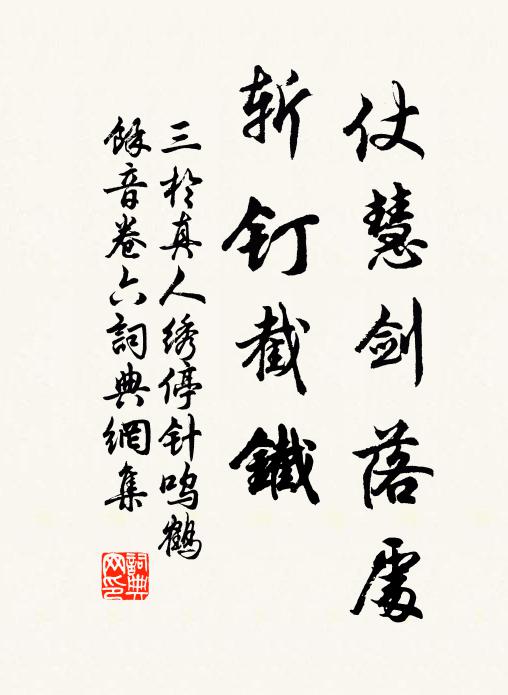 仗慧剑落處
斩钉截鐵
三於真人绣停针鸣鹤
餘音卷六詞典網集
詞典网印